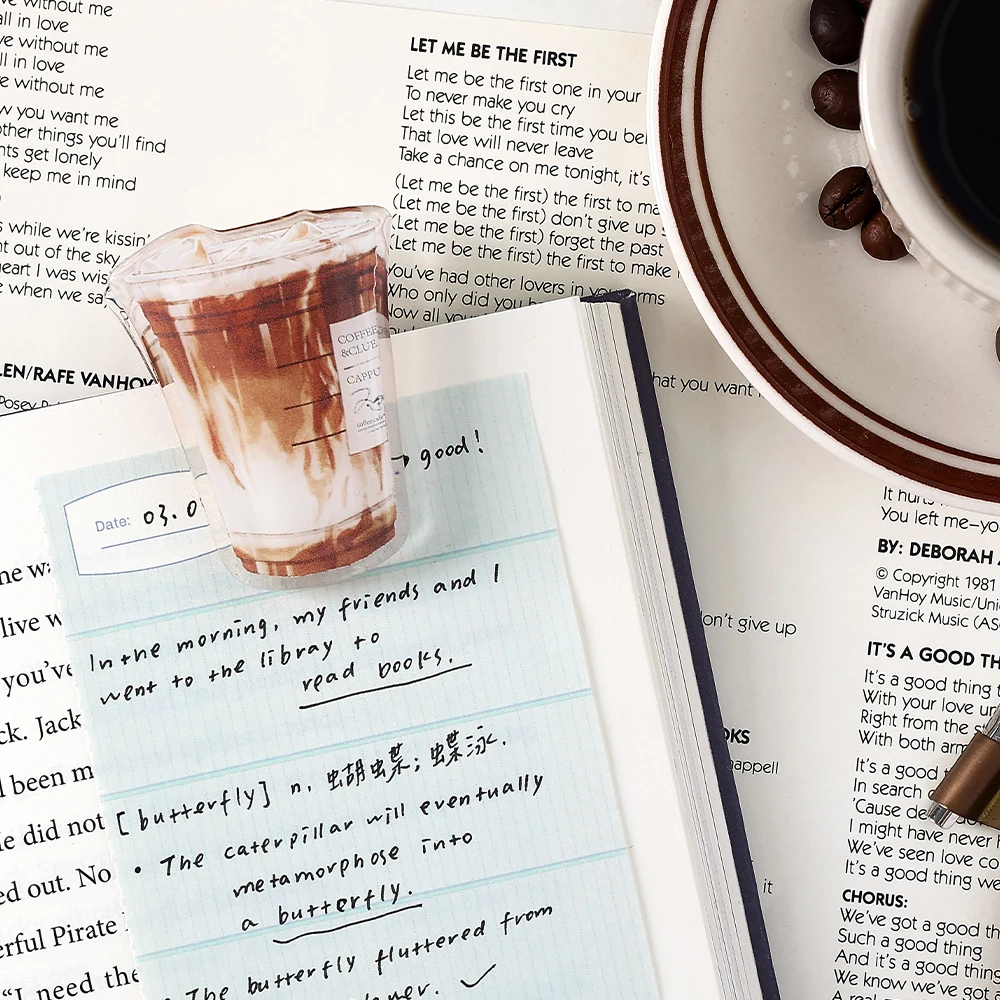 without me
all in love
ve without me
ll in love
e without me
w you want me
other things you'll find
nts get lonely
keep me in mind
s while we're kissin'
nt out of the sky
heart I was
e when we
LEN/RAFE VANHOY
LET ME BE THE FIRST
Let me be the first one in your
To never make you cry
Let this be the first time you
That love will never leave
Take a chance on me tonight, it's
(Let me be the first) the first to
(Let me be the first) don't give up
(Let me be the first) forget the past
(Let me be the first) the first to make
You've had other lovers in your arms
Who only did you
Now all
hat you want
COFFEE
&CLUE
CAPPU
good!
Date: 03.0
In the morning, my friends and I
went to the libray to
read books.
[butterfly] n. 蝴蝶; 蝶泳.
• The caterpillar will eventually
metamorphose into
a butterfly.
• The butterfly fluttered from
live
you've
ck. Jack
been
He did not
ed out. No
erful Pirate
"I need the
don't give up
OKS
happell
it
It hurts
You left me—yo
BY: DEBORAH
© Copyright 1981
VanHoy Music/Unic
Struzick Music (AS
IT'S A GOOD TH
It's a good thing
With your love
Right from the
With both arm
It's a good
In search
'Cause
I might have never
We've seen love co
It's a good thing we
CHORUS:
We've got a good th
Such a good thing
And it's a good thing
We know we've got